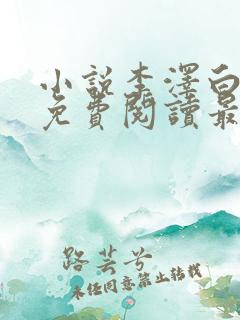 小說李澤白
免費閱讀最
路芸兮
未经同意禁止转载